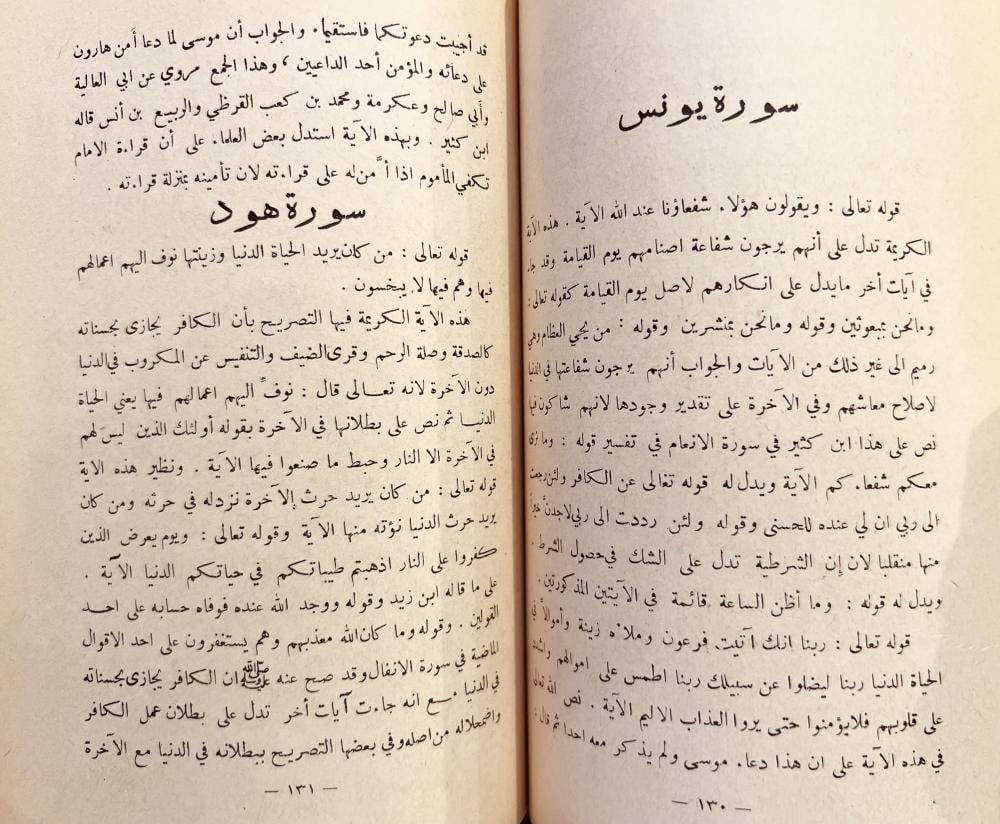 سورة يونس
قوله تعالى : ويقولون هؤلاء شفعاؤنا عند الله الآية . هذه الآية
الكريمة تدل على أنهم يرجون شفاعة اصنامهم يوم القيامة وقد جاء
في آيات أخر مايدل على انكارهم لاصل يوم القيامة كقوله تعالى :
ومانحن بمبعوثين وقوله ومانحن بمنشرين وقوله : من يحي العظام وهي
رميم الى غير ذلك من الآيات والجواب أنهم يرجون شفاعتها في الدنيا
لاصلاح معاشهم وفي الآخرة على تقدير وجودها لانهم شاكون فيها
نص على هذا ابن كثير في سورة الانعام في تفسير قوله : وما نرى
معكم شفعاءكم الآية ويدل له قوله تعالى عن الكافر ولئن رجعت
الى ربي ان لي عنده للحسنى وقوله ولئن رددت الى ربي لاجدن خيراً
منها منقلبا لان إن الشرطية تدل على الشك في حصول الشرط .
ويدل له قوله : وما أظن الساعة قائمة في الآيتين المذكورتين .
قوله تعالى : ربنا انك آتيت فرعون وملاءه زينة وأموالاً في
الحياة الدنيا ربنا ليضلوا عن سبيلك ربنا اطمس على اموالهم واشدد
على قلوبهم فلايؤمنوا حتى يروا العذاب الاليم الآية . نص الله تعالى
في هذه الآية على ان هذا دعاء موسى ولم يذكر معه احدا ثم قال :
— ١٣٠ —
قد أجيبت دعوتكما فاستقيما . والجواب أن موسى لما دعا أمن هارون
على دعائه والمؤمن أحد الداعيين ، وهذا الجمع مروي عن ابي العالية
وأبي صالح وعكرمة ومحمد بن كعب القرظي والربيع بن أنس قاله
ابن كثير . وبهذه الآية استدل بعض العلماء على أن قراءة الامام
تكفي المأموم اذا أمَّن له على قراءته لان تأمينه بمنزلة قراءته .
سورة هود
قوله تعالى : من كان يريد الحياة الدنيا وزينتها نوف اليهم اعمالهم
فيها وهم فيها لا يبخسون .
هذه الآية الكريمة فيها التصريح بأن الكافر يجازى بحسناته
كالصدقة وصلة الرحم وقرى الضيف والتنفيس عن المكروب في الدنيا
دون الآخرة لانه تعالى قال : نوفِّ اليهم اعمالهم فيها يعني الحياة
الدنيا ثم نص على بطلانها في الآخرة بقوله أولئك الذين ليس لهم
في الآخرة الا النار وحبط ما صنعوا فيها الآية . ونظير هذه الاية
قوله تعالى : من كان يريد حرث الآخرة نزدله في حرثه ومن كان
يريد حرث الدنيا نؤته منها الآية وقوله تعالى : ويوم يعرض الذين
كفروا على النار اذهبتم طيباتكم في حياتكم الدنيا الآية .
على ما قاله ابن زيد وقوله ووجد الله عنده فوفاه حسابه على احد
القولين . وقوله وما كان الله معذبهم وهم يستغفرون على احد الاقوال
الماضية في سورة الانفال وقد صح عنه ﷺ ان الكافر يجازى بحسناته
في الدنيا مع انه جاءت آيات أخر تدل على بطلان عمل الكافر
واضمحلاله من اصله وفي بعضها التصريح ببطلانه في الدنيا مع الآخرة
— ١٣١ —